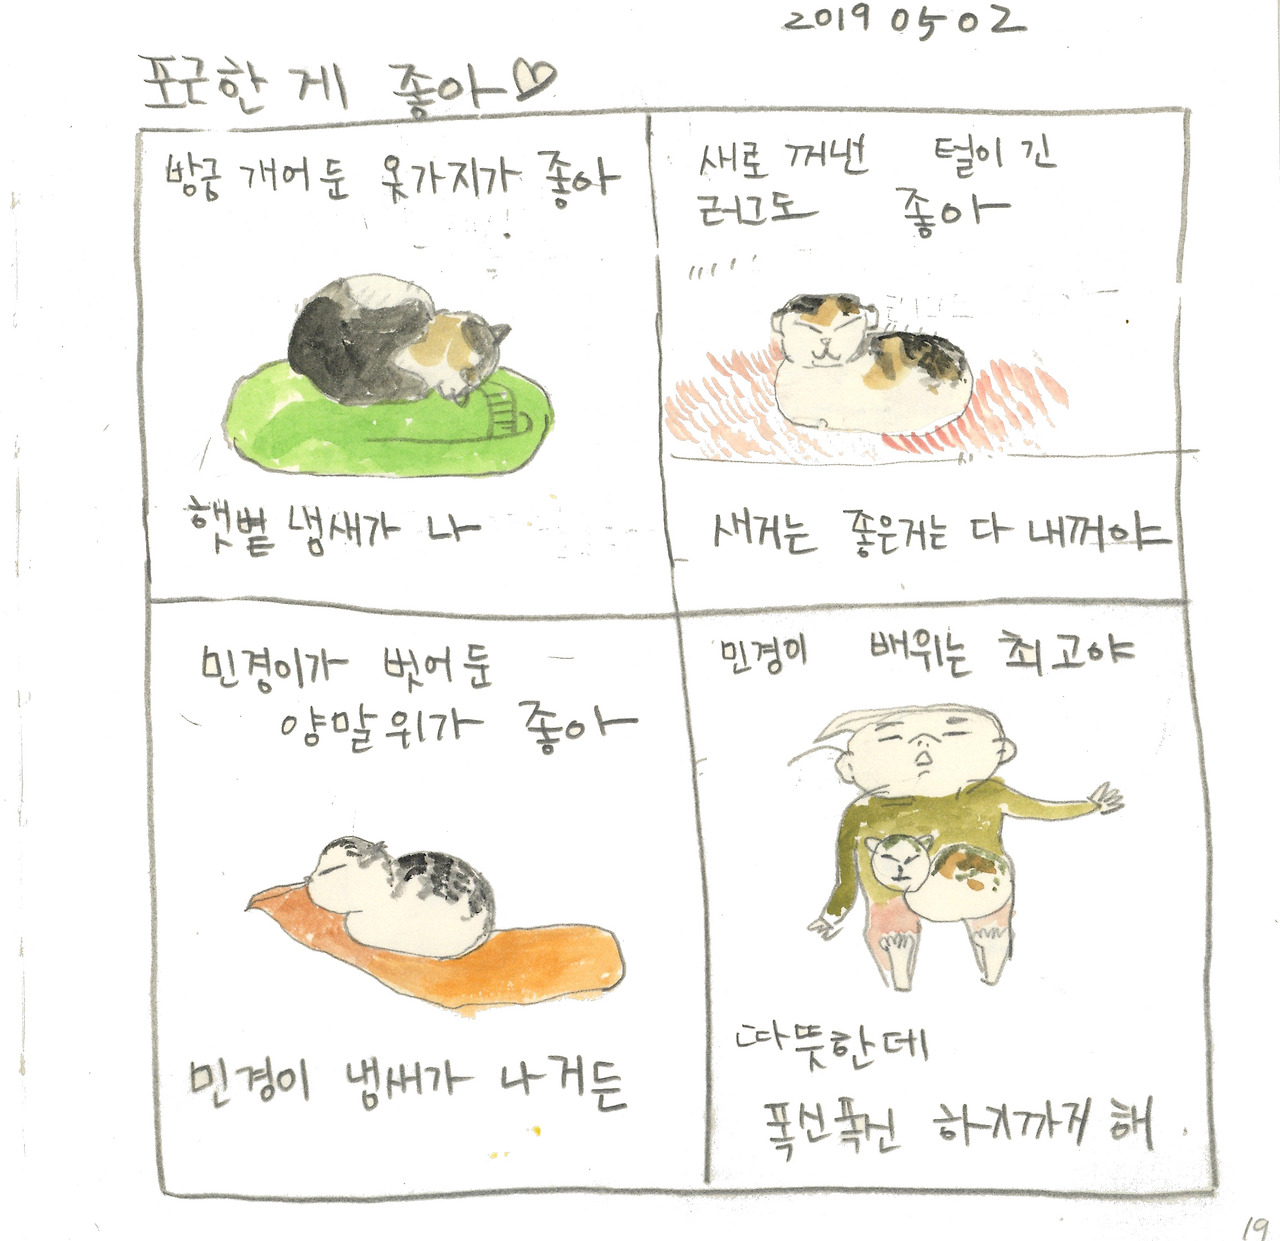 2019 05 02
포근한 게 좋아♡
방금 개어 둔 옷가지가 좋아
햇볕 냄새가 나
새로 꺼낸 털이 긴
러그도 좋아
새거는 좋은거는 다 내꺼야
민경이가 벗어 둔
양말 위가 좋아
민경이 냄새가 나거든
민경이 배위는 최고야
따뜻한데
폭신폭신 하기까지 해
19